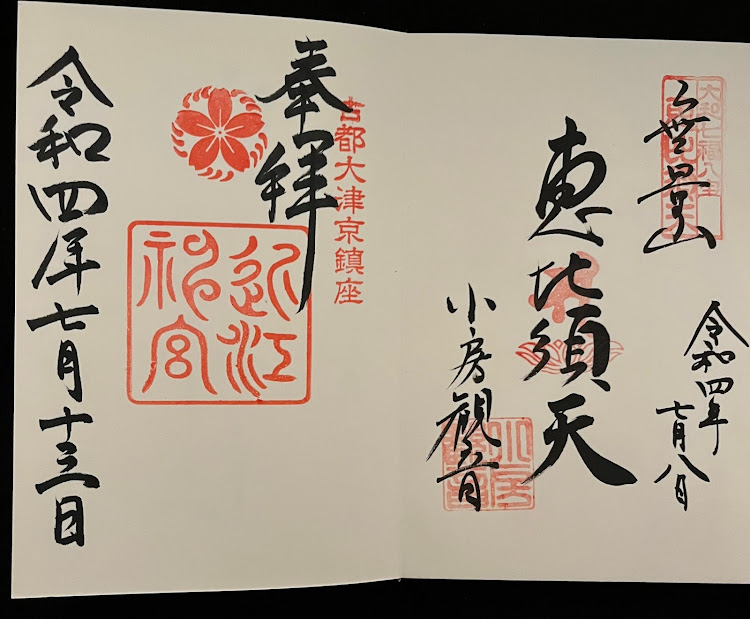 大和七福八宝
無量山
令和四年
七月八日
恵比須天
小房観音
古都大津京鎮座
奉拝
近江
神宮
令和四年七月十三日